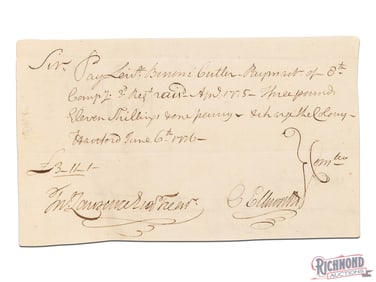 Sir, Pay Lieut. Benoni Cutler Paymast of 8th
Compy Regt raisd Apl 1775 Three pounds
Eleven Shillings & one penny & charge the Colony
Hartford June 6th 1776
£3..11..1
Comtee
Jno Lawrence Esqr Treasr
O Ellsworth
RICHMOND
AUCTIONS